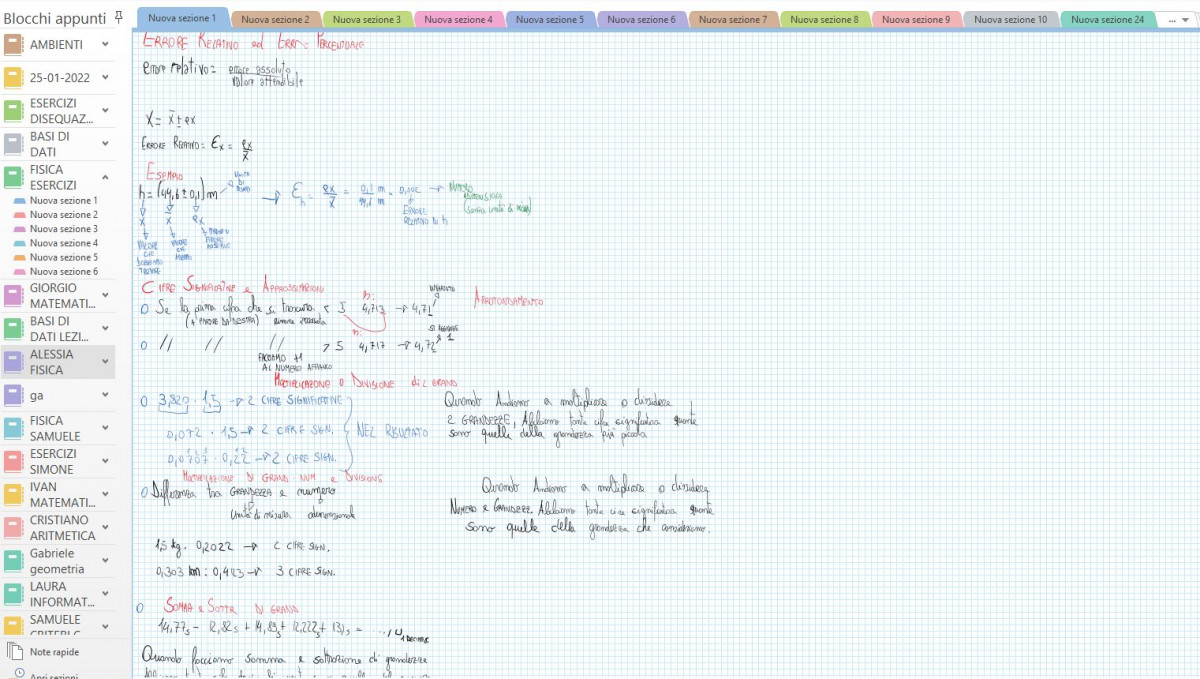 Blocchi appunti
AMBIENTI
25-01-2022
ESERCIZI
DISEQUAZ...
BASI DI
DATI
FISICA
ESERCIZI
Nuova sezione 1
Nuova sezione 2
Nuova sezione 3
Nuova sezione 4
Nuova sezione 5
Nuova sezione 6
GIORGIO
MATEMATI...
BASI DI
DATI LEZI...
ALESSIA
FISICA
ga
FISICA
SAMUELE
ESERCIZI
SIMONE
IVAN
MATEMATI...
CRISTIANO
ARITMETICA
Gabriele
geometria
LAURA
INFORMAT...
SAMUELE
Note rapide
Apri sezioni
Nuova sezione 1 Nuova sezione 2 Nuova sezione 3 Nuova sezione 4 Nuova sezione 5 Nuova sezione 6 Nuova sezione 7 Nuova sezione 8 Nuova sezione 9 Nuova sezione 10 Nuova sezione 24 ...
ERRORE RELATIVO ed ERRORE PERCENTUALE
errore relativo = errore assoluto
valore attendibile
X = x̄ ± ex
ERRORE RELATIVO = Ex = ex
x̄
ESEMPIO
h = (44,6 ± 0,1) m
Eh = ex = 0,1 m = 0,002 → NUMERO
x̄ 44,6 m
(senza unità di misura)
ERRORE
RELATIVO DI h
X x̄ ex
VALORE
CHE
DOBBIAMO
TROVARE
CIFRE SIGNIFICATIVE e APPROSSIMAZIONI
Se la prima cifra che si trascura < 5 4,713 → 4,71
(A PARTIRE DA DESTRA) rimane
ARROTONDAMENTO
// // // > 5 4,717 → 4,72
SI AGGIUNGE 1
FACCIAMO +1
AL NUMERO AFFIANCO
MOLTIPLICAZIONE O DIVISIONE di 2 GRAND
3,820 · 1,5 → 2 CIFRE SIGNIFICATIVE
0,072 · 1,5 → 2 CIFRE SIGN.
NEL RISULTATO
0,0707 · 0,22 → 2 CIFRE SIGN.
Quando Andiamo a moltiplicare o dividere
2 GRANDEZZE, Abbiamo tante cifre significative quante
sono quelle della grandezza più piccola
MOLTIPLICAZIONE DI GRAND · NUM e DIVISIONE
Differenza tra GRANDEZZA e numero
Unità di misura adimensionale
Quando Andiamo a moltiplicare o dividere
NUMERO e GRANDEZZE, Abbiamo tante cifre significative quante
sono quelle della grandezza che consideriamo.
1,5 kg · 0,2022 → 2 CIFRE SIGN.
0,303 km : 0,423 → 3 CIFRE SIGN.
SOMMA e SOTTR DI GRAND
Quando facciamo somma e sottrazione di grandezze